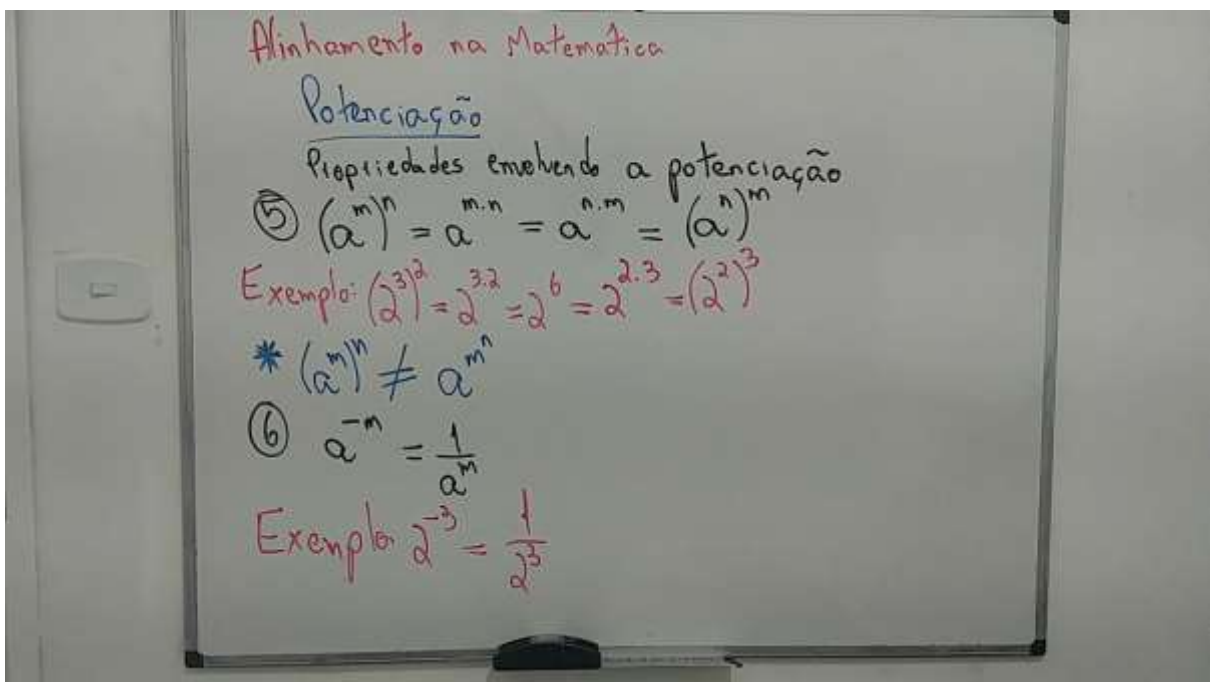 Alinhamento na Matematica
Potenciação
Propriedades envolvendo a potenciação
⑤ (a^m)^n = a^{m.n} = a^{n.m} = (a^n)^m
Exemplo: (2^3)^2 = 2^{3.2} = 2^6 = 2^{2.3} = (2^2)^3
* (a^m)^n ≠ a^{m^n}
⑥ a^{-m} = 1/a^m
Exemplo: 2^{-3} = 1/2^3